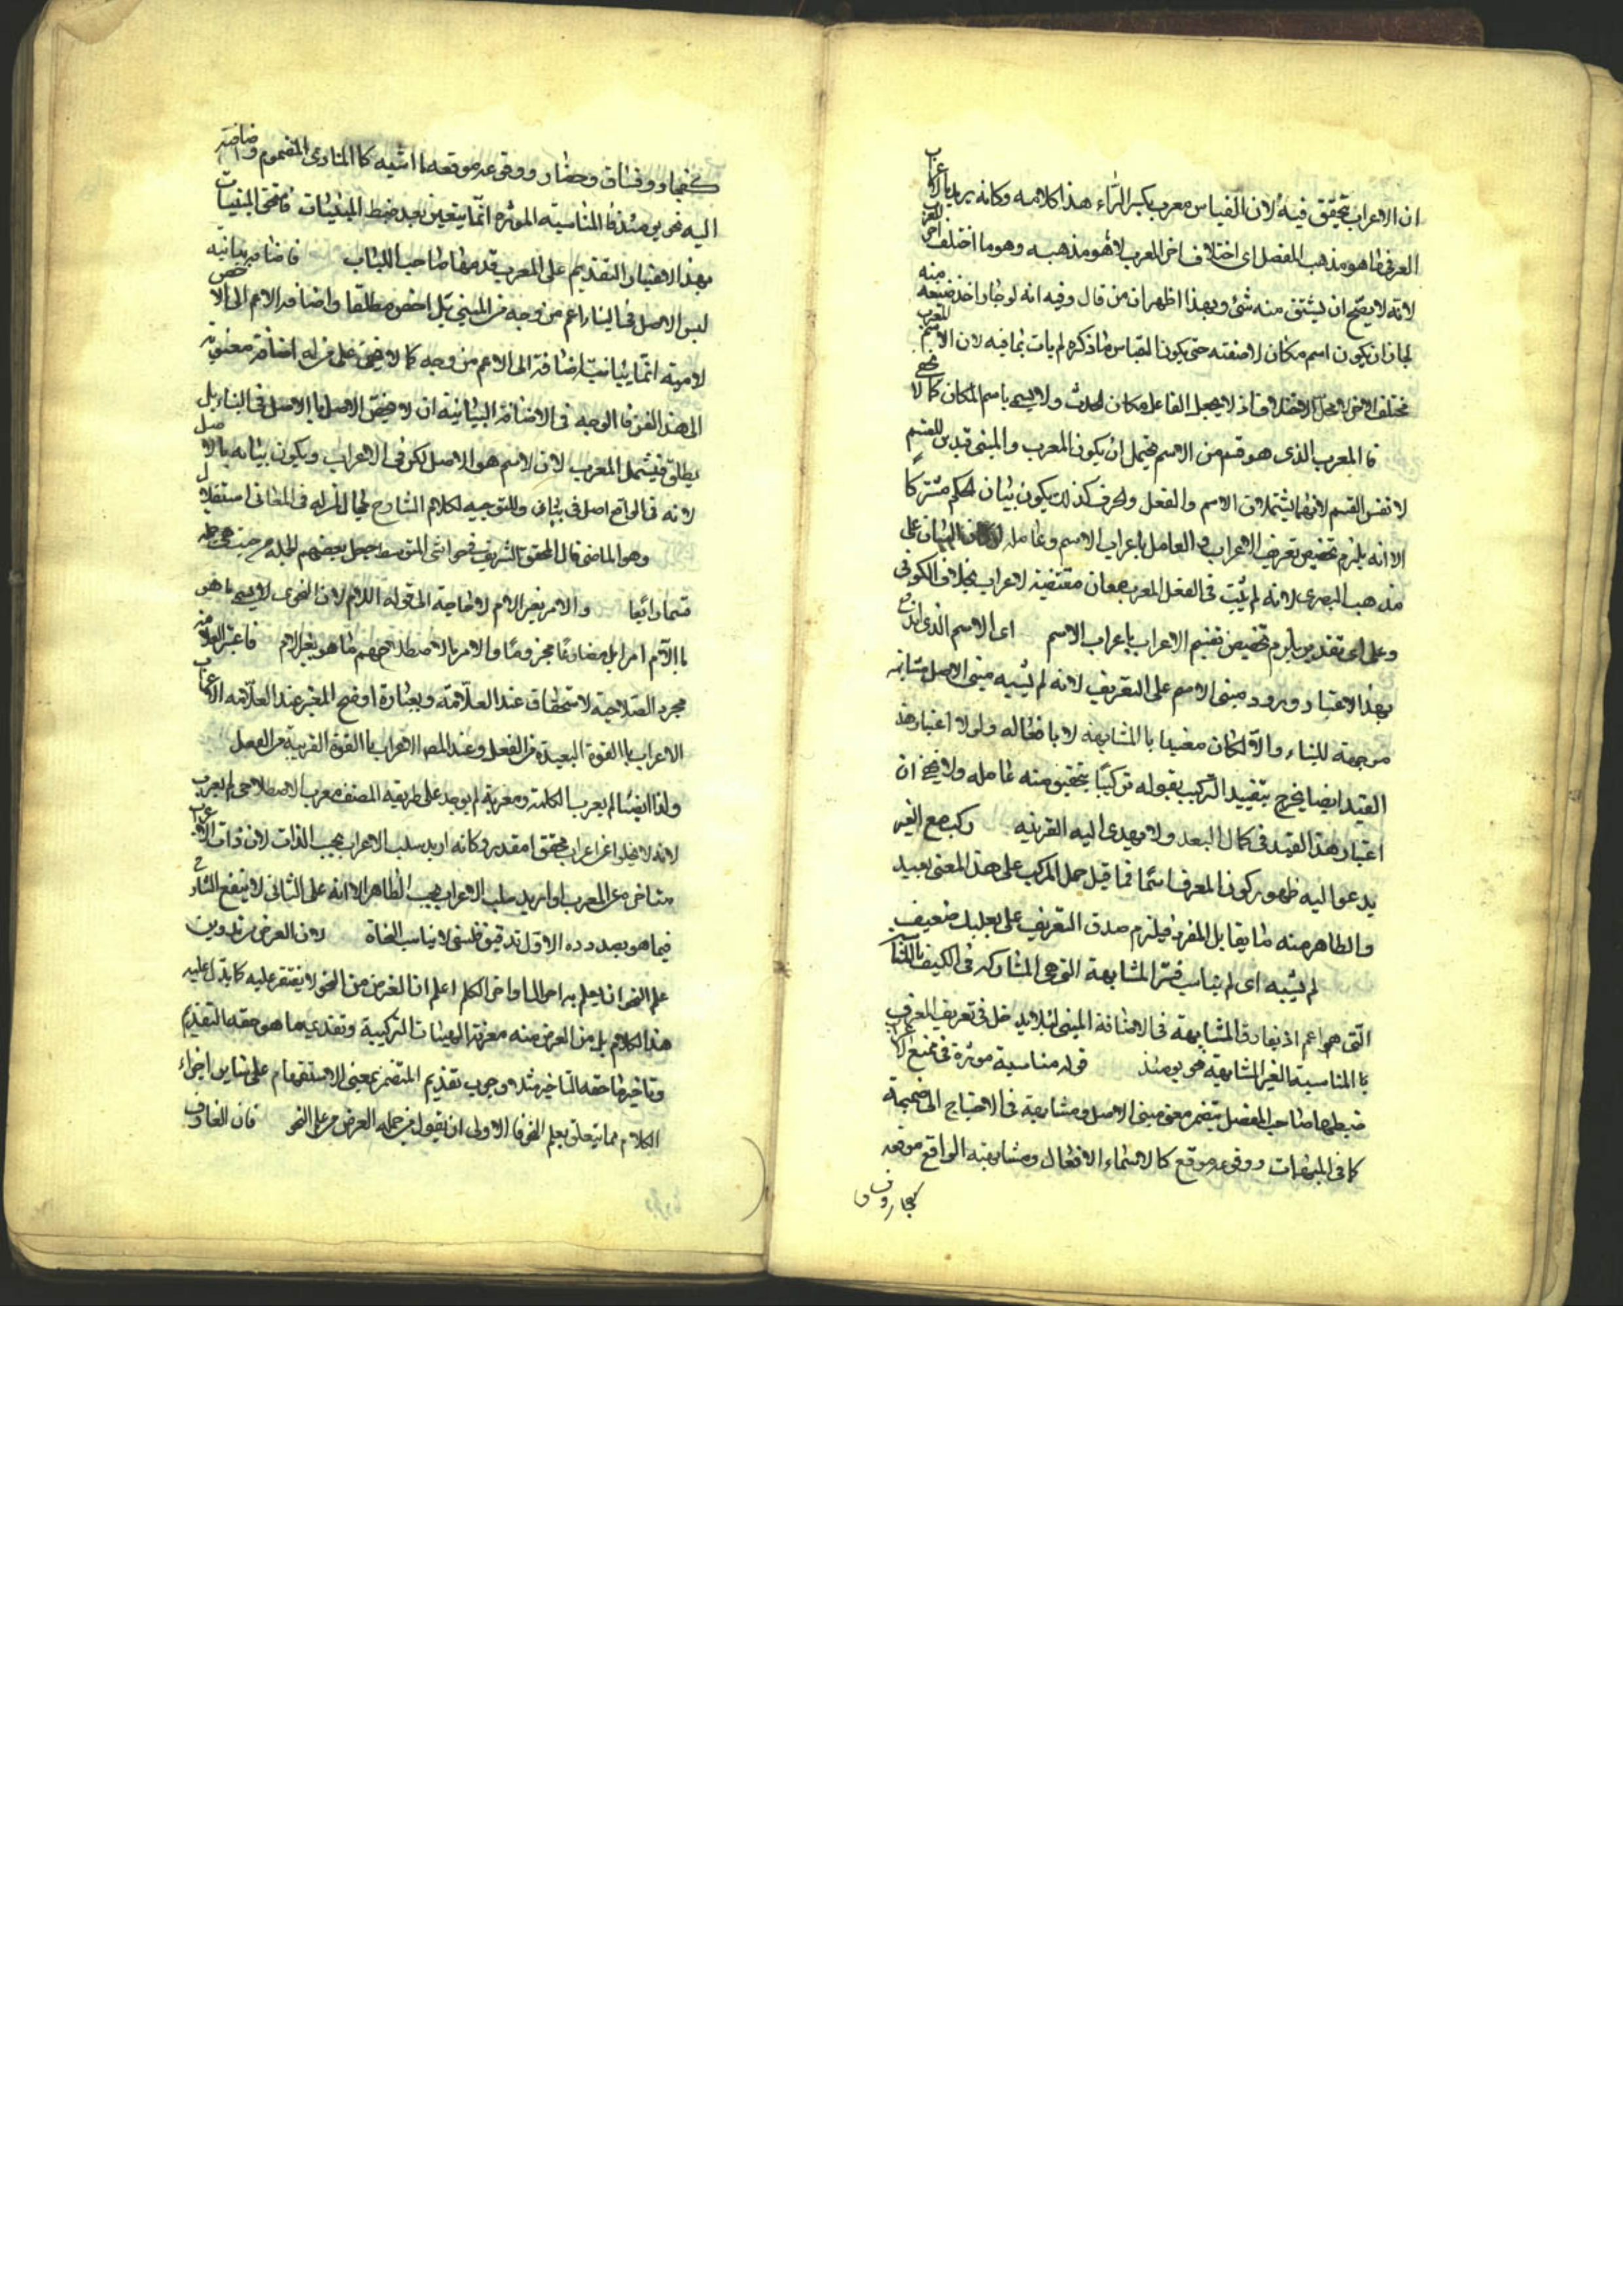 ان الاعراب تحقق فيه لان القياس معرب بكسر الراء هذا كلامه وكانه يريد بالاعراب
العرفى ما هو مذهب المفصل اى اختلاف اخر المعرب لا هو مذهبه وهو ما اختلف اخر المعرب
لانه لا يصح ان يشتق منه شئ وبهذا اظهر ان من قال وفيه انه لو جاز اخذ صيغه منه
لجاز ان يكون اسم مكان لا صفته حتى يكون القياس ما ذكره لم يات بما فيه لان الاسم المعرب
مختلف الاخر لا محل الاختلاف اذ لا يجعل الفاعل مكان الحدث ولا يسمى باسم المكان كما لا يخفى
فالمعرب الذى هو قسم من الاسم يحتمل ان يكون المعرب والمبنى قيدين للقسم
لا نفس القسم لانهما يشتملان الاسم والفعل والحرف كذلك يكون بيان الحكم مشتركا
الا انه يلزم تخصيص تعريف الاعراب والعامل باعراب الاسم وعامله البيان على
مذهب البصرى لانه لم يثبت فى الفعل المعرب معان مقتضية لاعراب بخلاف الكوفى
وعلى اى تقدير يلزم تخصيص تقسيم الاعراب باعراب الاسم اى الاسم الذى
بهذا الاعتبار ورود مبنى الاسم على التعريف لانه لم يشبه مبنى الاصل مشابهة
موجهة للبناء والا لكان مفيدا بالمشابهة لا بافعاله ولولا اعتبار هذ
القيد ايضا يخرج بتقييد التركيب بقوله تركيبا يتحقق منه عامله ولا يخفى ان
اعتبار هذا القيد فى كمال البعد ولا يهدى اليه القرينه ركب مع الغير
يدعو اليه ظهور كون المعرف اسما فما قيل حمل المركب على هذا المعنى بعيد
والظاهر منه ما يقابل المفرد فيلزم صدق التعريف على بعلبك ضعيف
لم يشبه اى لم يناسب فسر المشابهة التى هى المشاركة فى الكيف بالمناسبة
التى هى اعم اذ يفارق المشابهة فى الاضافة المبنى لئلا يدخل فى تعريف المعرب
بالمناسبة الغير المشابهة نحو يومئذ قوله مناسبة مؤثرة فى منع الاعراب
ضبطها صاحب المفصل بتضمن معنى مبنى الاصل ومشابهته فى الاحتياج الى ضميمة
كما فى المبهمات ووقوعه موقع كالاسماء الافعال ومشابهته الواقع موقعه
كفجار وفساق
كفجار وفساق وحضار ووقوعه موقعه ما اشبه كالمنادى المضموم واضافته
اليه نحو يومئذ فالمناسبة المؤثرة انما يتعين بعد ضبط المبنيات
بهذا الاعتبار التقديم على المعرب قدمها صاحب اللباب فاضافته بيانيه
ليس الاصل فى البناء اعم من وجه من المبنى بل اخص مطلقا واضافة الاعم الى الاخص
لامية انما بيانيته اضافة الى الاعم من وجه كما لا يخفى على من له اضافة معنوية
الى هذا الفن فالوجه فى الاضافة البيانية ان لا يخص الاصل بالاصل فى البناء بل
يطلق فيشمل المعرب لان الاسم هو الاصل لكن فى الاعراب ويكون بيانه بالاصل
لانه فى الواقع اصل فى بناء وللتوجيه لكلام الشارح مجال
وهو الماضى قال المحقق الشريف فى حواشى المتوسط جعل بعضهم الجملة من حيث هى جملة
قسما رابعا والامر بغير اللام لا حاجة الى قوله اللام لان النحوى لا يسمى ما هو
باللام امرا بل مضارعا مجزوما والامر بالاصطلاحهم ما هو بغير لام فاعتبر العلامة
مجرد الصلاحية لاستحقاق عند العلامة وبعبارة اوضح المعتبر عند العلامة الاعراب
الاعراب بالقوة البعيدة من الفعل وعند المص الاعراب بالقوة القريبة من الفعل
ولذا ايضا لم يعرب الكلمة ومعربة لم يوجد على طريقه المصنف معرب الاصطلاحى لم يعرب
لانه لا يخلوا عن اعراب محقق او مقدر وكانه اريد سلب الاعراب بحسب الذات لان ذات الاعراب
متاخر عن المعرب او اريد سلب الاعراب بحسب الظاهر الا انه على الثانى لا ينفع الشارح
فيما هو بصدده الاول تدقيق فلسفى لا يناسب النحاة لان الغرض من تدوين
علم النحو ان يعلم به احوال اواخر الكلم اعلم ان الغرض من النحو لا يقتصر عليه كما يدل عليه
هذا الكلام بل من الغرض منه معرفة الهيئات التركيبية وتقديم ما هو حقه التقديم
وتاخير ما حقه التاخير مثلا وجوب تقديم المتضمن بمعنى الاستفهام على سائر اجزاء
الكلام مما يتعلق بعلم النحو فالاولى ان يقول من جملة الغرض من علم النحو فان العارف